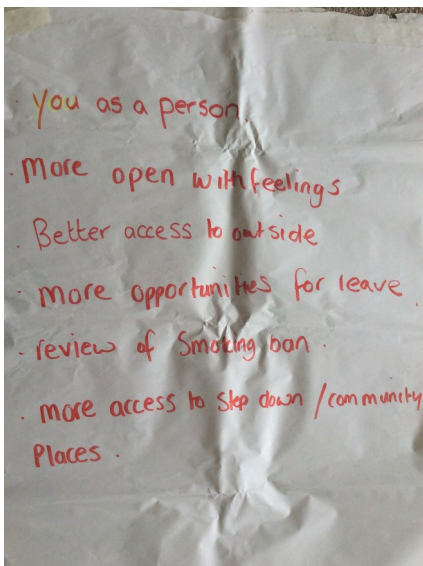 · You as a person.
· More open with feelings
· Better access to outside
· more opportunities for leave.
· review of Smoking ban.
· more access to step down / community
Places.